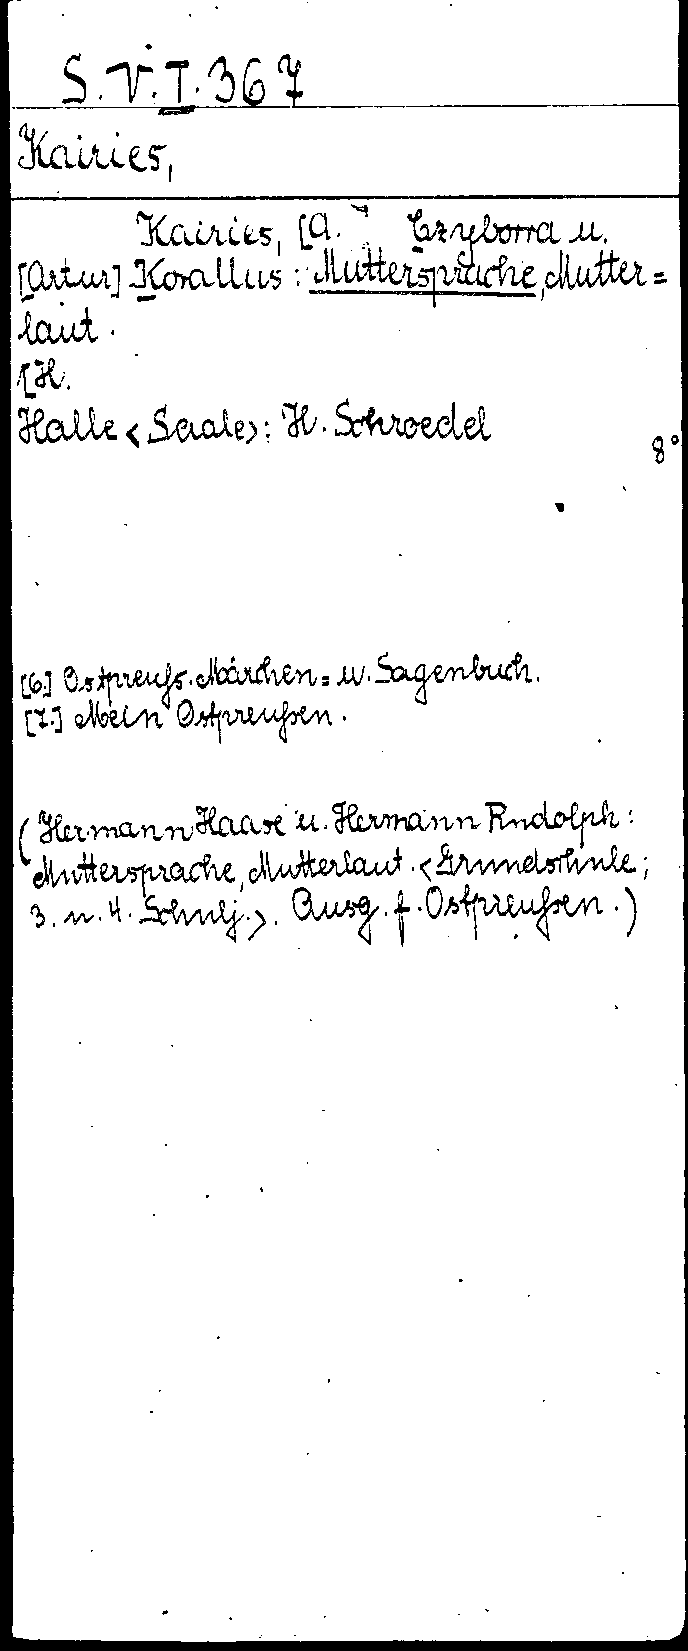 S.V.I.367
Kairies,
Kairies, [A. Czyborra u.
[Artur] Korallus: Muttersprache, Mutter=
laut.
[H.
Halle <Saale>: H. Schroedel
8°
[6.] Ostpreuß. Märchen= u. Sagenbuch.
[7.] Mein Ostpreußen.
(Hermann Haase u. Hermann Rudolph:
Muttersprache, Mutterlaut. <Grundschule;
3. u. 4. Schulj.>. Ausg. f. Ostpreußen.)